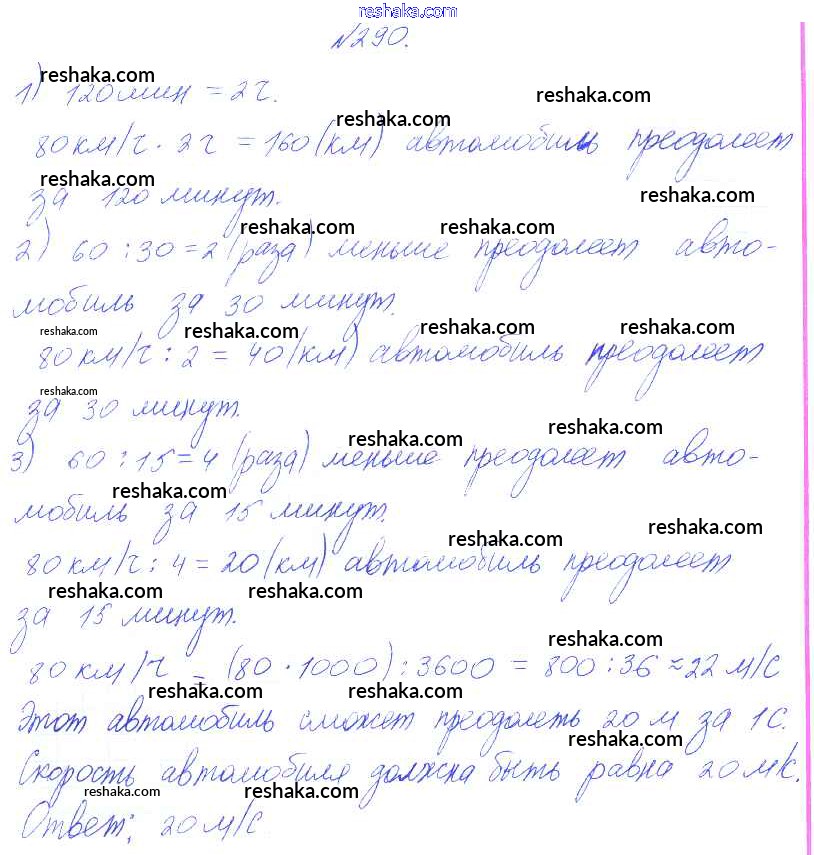 reshaka.com
№290.
reshaka.com
reshaka.com
1) 120 мин = 2 г.
reshaka.com
80 км/г · 2 г = 160 (км) автомобиль преодолеет
reshaka.com
reshaka.com
за 120 минут.
reshaka.com reshaka.com
2) 60 : 30 = 2 (раза) меньше преодолеет авто-
мобиль за 30 минут.
reshaka.com reshaka.com reshaka.com reshaka.com
80 км/г : 2 = 40 (км) автомобиль преодолеет
reshaka.com
за 30 минут.
reshaka.com reshaka.com
3) 60 : 15 = 4 (раза) меньше преодолеет авто-
reshaka.com
мобиль за 15 минут.
reshaka.com reshaka.com
80 км/г : 4 = 20 (км) автомобиль преодолеет
reshaka.com reshaka.com
за 15 минут.
reshaka.com
80 км/г = (80 · 1000) : 3600 = 800 : 36 ≈ 22 м/с
reshaka.com reshaka.com
Этот автомобиль сможет преодолеть 20 м за 1с.
reshaka.com
Скорость автомобиля должна быть равна 20 м/с.
reshaka.com reshaka.com
Ответ: 20 м/с